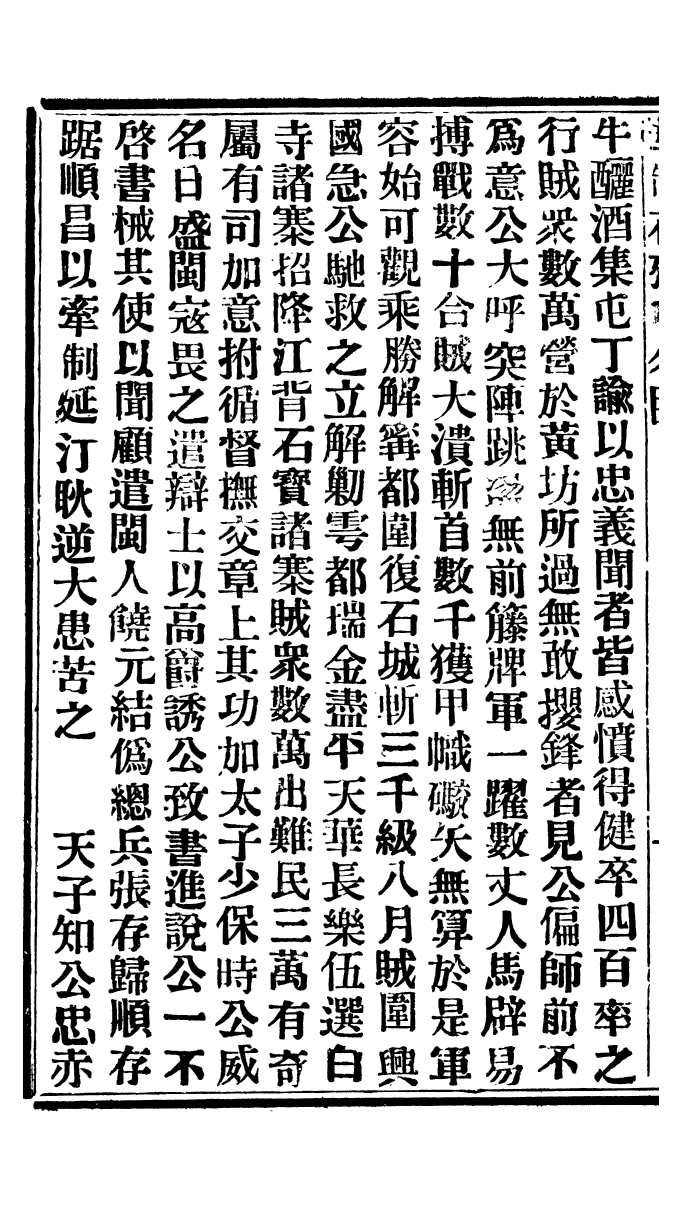 牛釃酒集屯丁諭以忠義聞者皆感憤得健卒四百率之
行賊衆數萬營於黃坊所過無敢攖鋒者見公偏師前不
爲意公大呼突陣跳盪無前籐牌軍一躍數丈人馬辟易
搏戰數十合賊大潰斬首數千獲甲幟礮矢無算於是軍
容始可觀乘勝解寗都圍復石城斬三千級八月賊圍興
國急公馳救之立解勦雩都瑞金盡平天華長樂伍選白
寺諸寨招降江背石寶諸寨賊衆數萬出難民三萬有奇
屬有司加意拊循督撫交章上其功加太子少保時公威
名日盛閩寇畏之遣辯士以高爵誘公致書進說公一不
啓書械其使以聞顧遣閩人饒元結僞總兵張存歸順存
踞順昌以牽制延汀耿逆大患苦之　天子知公忠赤